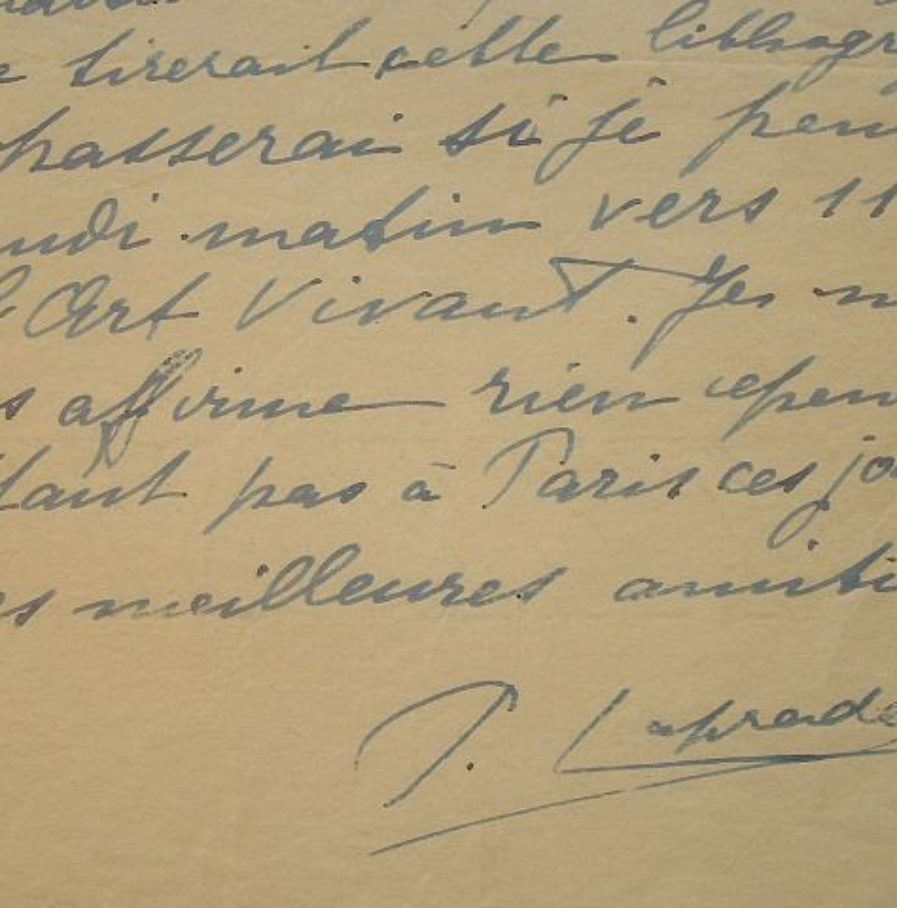 tirerait cette lithogr
passerai si je peu
udi matin vers 11
l'Art Vivant. Je n
s affirme rien
tant pas à Paris ces jo
es meilleures amiti
P. Laprade